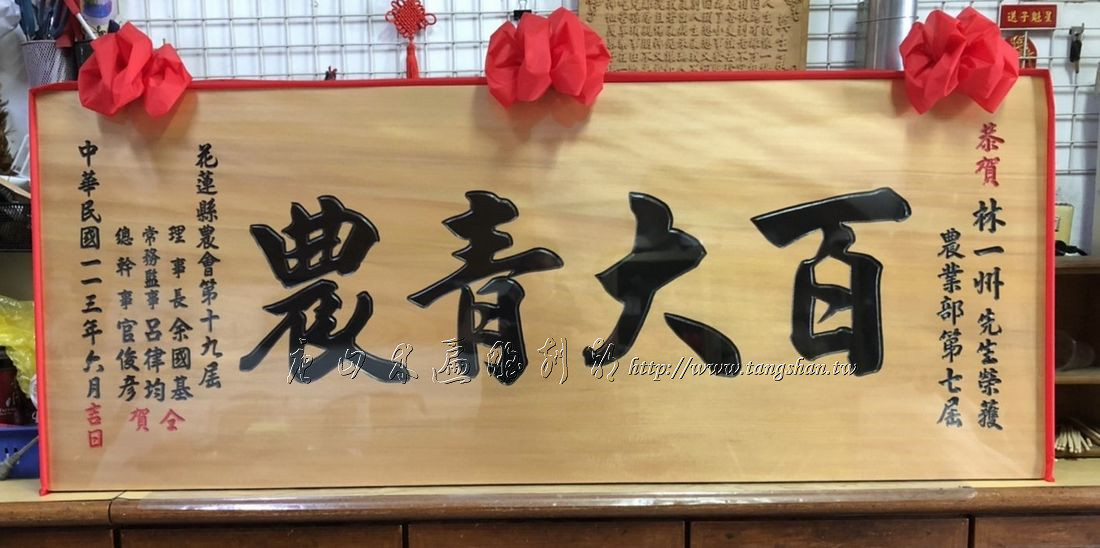 恭賀 林一州先生榮獲
農業部第七屆
百大青農
花蓮縣農會第十九屆
理事長余國基
常務監事呂律均
總幹事官俊彥
仝賀
中華民國一一三年六月吉日
唐山木匾雕刻 http://www.tangshan.tw